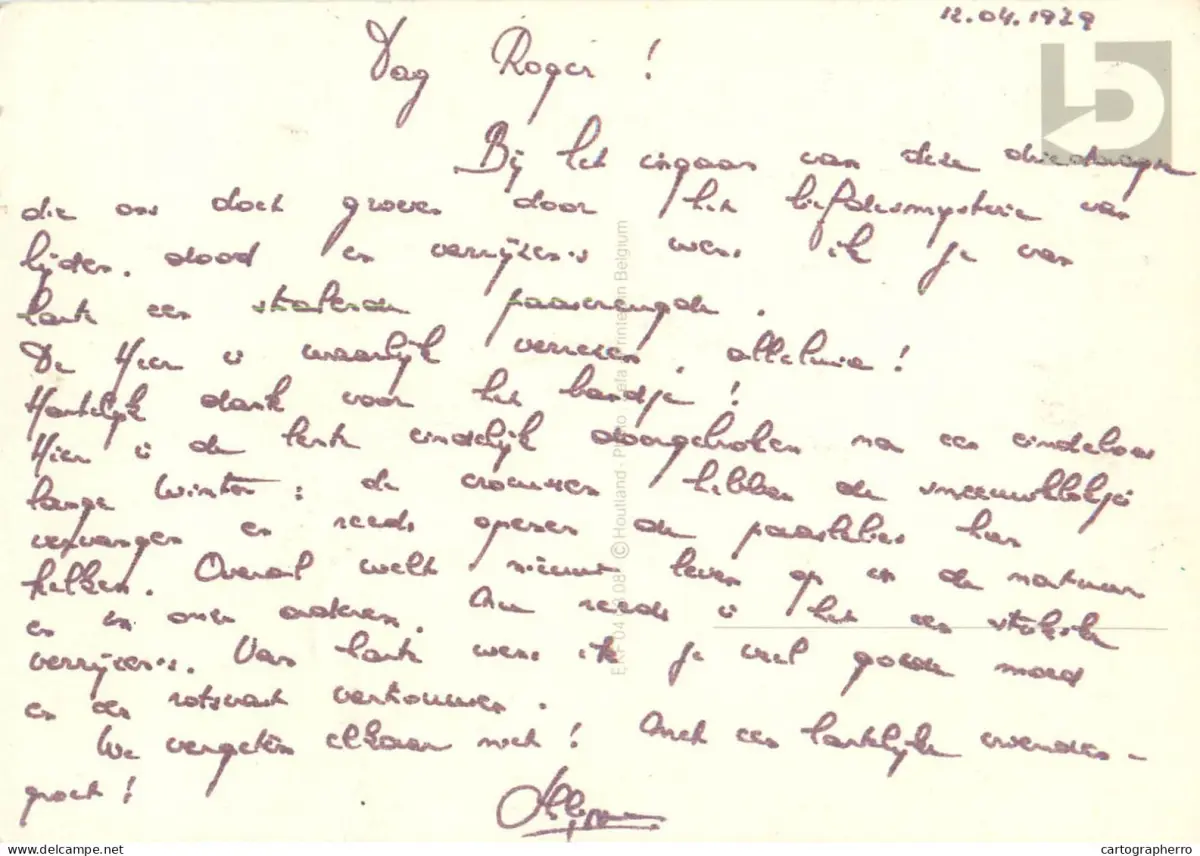 12.04.1979
Dag Roger !
Bij het ingaan van deze driedaagse
die ons doet groeien door het liefdesmysterie van
lijden, dood en verrijzenis wens ik je van
harte een stralende paasvreugde.
De Heer is waarlijk verrezen, alleluia !
Hartelijk dank voor het bandje !
Hier is de lente eindelijk doorgebroken na een eindeloos
lange winter : de crocussen hebben de sneeuwklokjes
vervangen en reeds openen de paaslelies hun
kelken. Overal welt nieuw leven op in de natuur
en in onze aderen. Nu reeds is het een stukske
verrijzenis. Van harte wens ik je veel goede moed
en een rotsvast vertrouwen.
We vergeten elkaar niet ! Met een hartelijke vriendes-
groet !
ERF 04 08 © Houtland - Photo Printed in Belgium
cartographerro